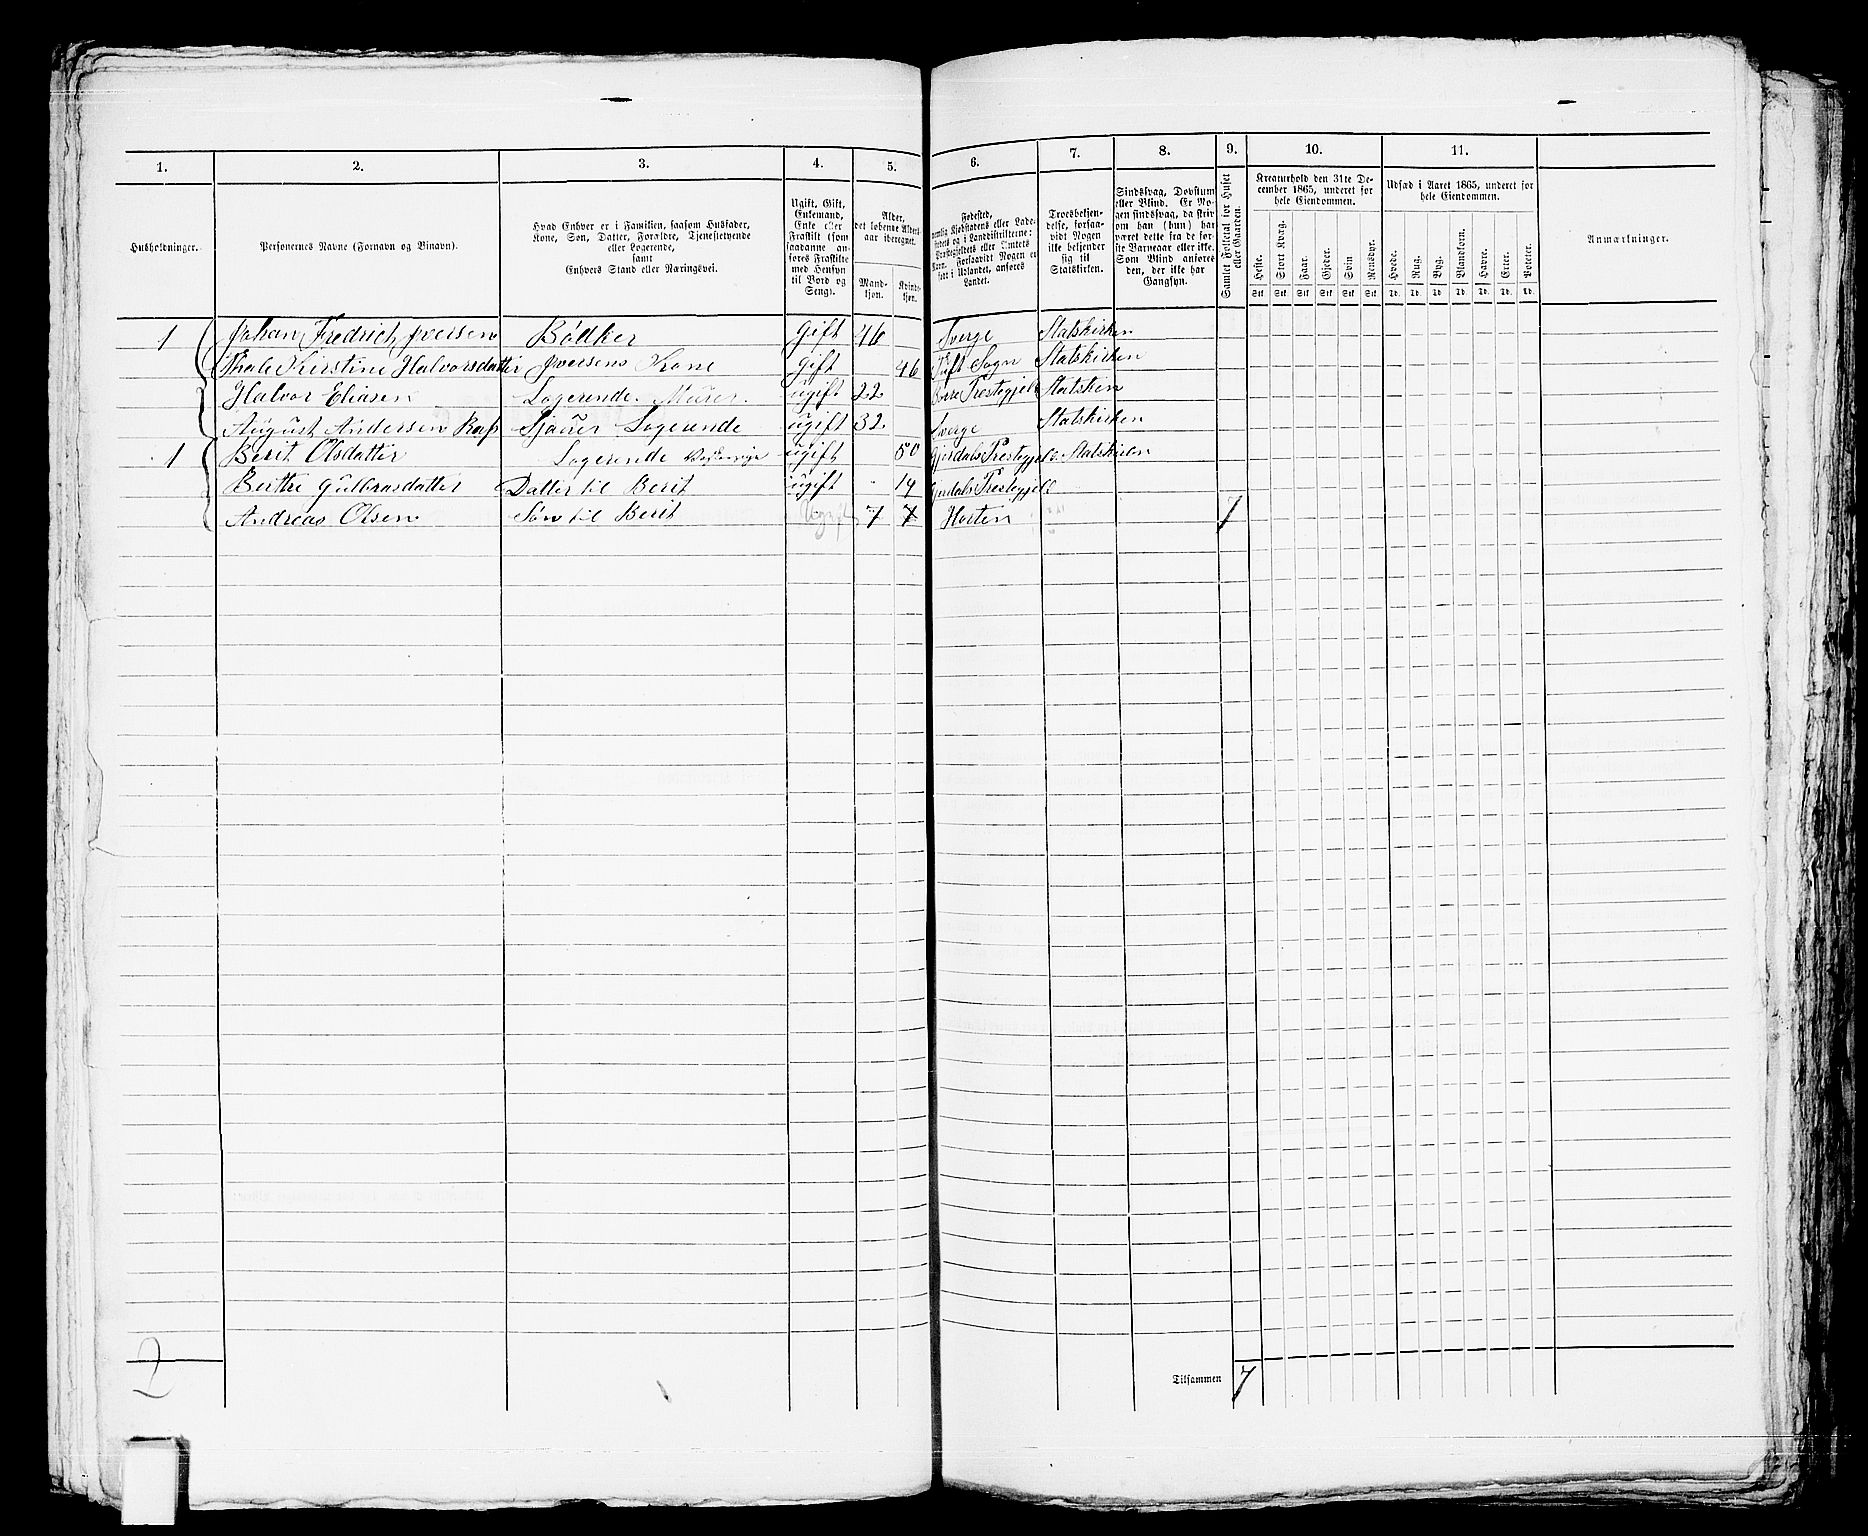 1. 2. 3. 4. 5. 6. 7. 8. 9. 10. 11.
Husholdninger.
Personernes Navne (Fornavn og Tilnavn).
Hvad Enhver er i Familien, saasom Husfader,
Kone, Søn, Datter, Forældre, Tjenestetyende
eller Logerende,
samt
Enhvers Stand eller Næringsvei.
Ugift, Gift,
Enkemand,
Enke eller
Fraskilt (som
saadanne an-
føres Fraskilte
med Hensyn
til Bord og
Seng).
Alder,
det løbende Alders-
aar iberegnet.
Mand-
kjøn.
Kvinde-
kjøn.
Fødested,
nemlig Kjøbstadens eller Lade-
stedets og i Landdistrikterne:
Præstegjeldets eller Amtets
Navn. Forsaavidt Nogen er
født i Udlandet, anføres
Landet.
Troesbekjen-
delse, forsaa-
vidt Nogen
ikke bekjender
sig til
Statskirken.
Sindssvag, Døvstum
eller Blind. Er No-
gen sindssvag, da skriv
om han (hun) har
været dette fra de før-
ste Barneaar eller ikke.
Som Blind anføres
den, der ikke har
Gangsyn.
Samlet Folketal for Huset
eller Gaarden.
Kreaturhold den 31te De-
cember 1865, underet for
hele Eiendommen.
Heste. Stort Kvæg. Faar. Gjeder. Svin Rensdyr.
Stk Stk Stk Stk Stk Stk
Udsæd i Aaret 1865, underet for
hele Eiendommen.
Hvede. Rug. Byg. Blandkorn. Havre. Erter. Poteter.
Td. Td. Td Td. Td. Td. Td.
Anmærkninger.
1 Johan Fredrich Iversen Bödker Gift 46 Sverge Statskirken
Thale Kirstine Halvorsdatter Iversens Kone Gift 46 Tuft Sogn Statskirken
Halvor Eliasen Logerende. Murer. ugift 22 Borre Prestegjeld Statsken
August Andersen Sjauer Logerende ugift 32 Sverge Statskirken
1 Berit Olsdatter Logerende ugift 50 Prestegjeld Statskirken
Berthe Gulbrasdatter Datter til Berit ugift 14 Prestegjeld
Andreas Olsen Søn til Berit Ugift 7 7 Horten 7
2
Tilsammen 7